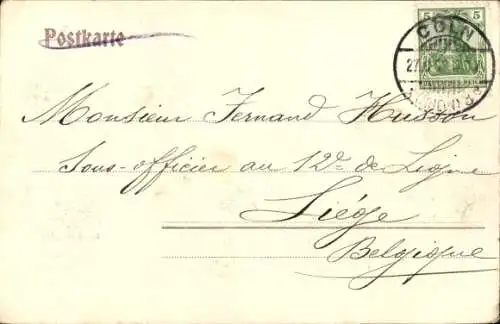 Postkarte
5 5
CÖLN
Monsieur Fernand Husson
Sous-officier au 12e de Ligne
Liége
Belgique